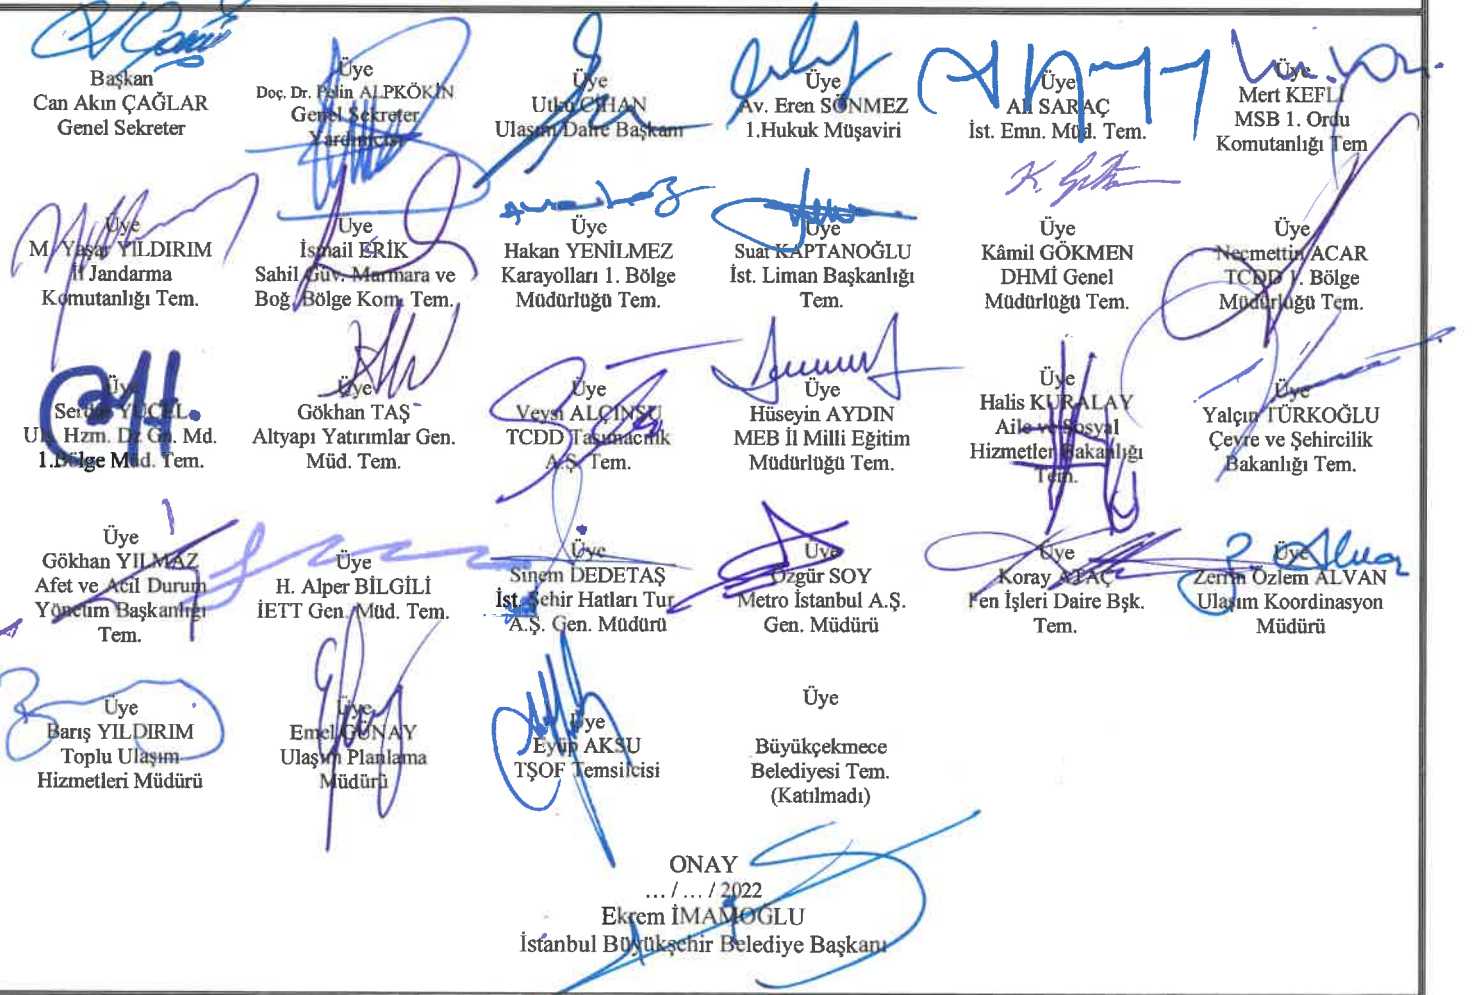 Başkan
Can Akın ÇAĞLAR
Genel Sekreter
Üye
Doç. Dr. Pelin ALPKÖKİN
Genel Sekreter
Yardımcısı
Üye
Utku CİHAN
Ulaşım Daire Başkanı
Üye
Av. Eren SÖNMEZ
1.Hukuk Müşaviri
Üye
Ali SARAÇ
İst. Emn. Müd. Tem.
Üye
Mert KEFLİ
MSB 1. Ordu
Komutanlığı Tem
Üye
M. Yaşar YILDIRIM
İl Jandarma
Komutanlığı Tem.
Üye
İsmail ERİK
Sahil Güv. Marmara ve
Boğ. Bölge Kom. Tem.
Üye
Hakan YENİLMEZ
Karayolları 1. Bölge
Müdürlüğü Tem.
Üye
Suat KAPTANOĞLU
İst. Liman Başkanlığı
Tem.
K.
Üye
Kâmil GÖKMEN
DHMİ Genel
Müdürlüğü Tem.
Üye
Necmettin ACAR
TCDD 1. Bölge
Müdürlüğü Tem.
Üye
Serdar YÜCEL
Ulş. Hzm. Dz Gn. Md.
1.Bölge Müd. Tem.
Üye
Gökhan TAŞ
Altyapı Yatırımlar Gen.
Müd. Tem.
Üye
Veysi ALÇINSU
TCDD Taşımacılık
A.Ş. Tem.
Üye
Hüseyin AYDIN
MEB İl Milli Eğitim
Müdürlüğü Tem.
Üye
Halis KURALAY
Aile ve Sosyal
Hizmetler Bakanlığı
Tem.
Üye
Yalçın TÜRKOĞLU
Çevre ve Şehircilik
Bakanlığı Tem.
Üye
Gökhan YILMAZ
Afet ve Acil Durum
Yönetim Başkanlığı
Tem.
Üye
H. Alper BİLGİLİ
İETT Gen. Müd. Tem.
Üye
Sinem DEDETAŞ
İst. Şehir Hatları Tur.
A.Ş. Gen. Müdürü
Üye
Özgür SOY
Metro İstanbul A.Ş.
Gen. Müdürü
Üye
Koray ATAÇ
Fen İşleri Daire Bşk.
Tem.
Üye
Zerrin Özlem ALVAN
Ulaşım Koordinasyon
Müdürü
Üye
Barış YILDIRIM
Toplu Ulaşım
Hizmetleri Müdürü
Üye
Emel GÜNAY
Ulaşım Planlama
Müdürü
Üye
Eyüp AKSU
TŞOF Temsilcisi
Üye
Büyükçekmece
Belediyesi Tem.
(Katılmadı)
ONAY
... / ... / 2022
Ekrem İMAMOĞLU
İstanbul Büyükşehir Belediye Başkanı